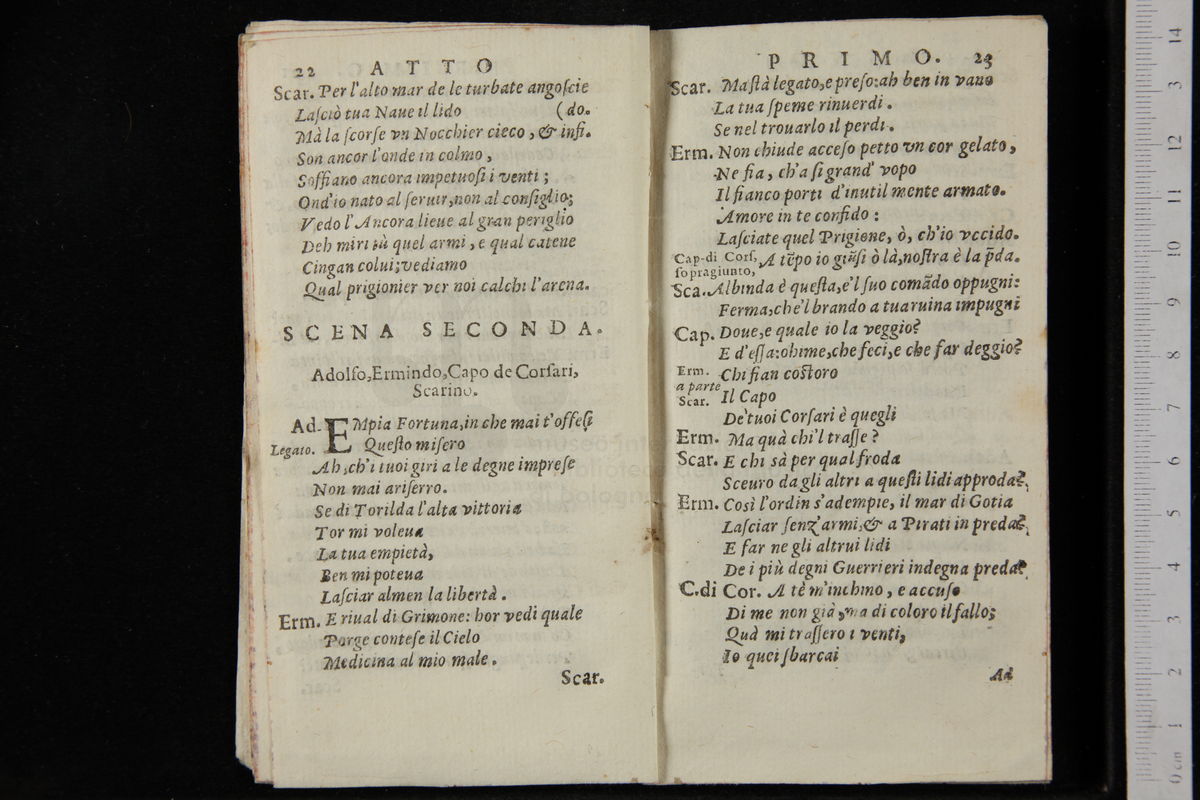 22 ATTO
Scar. Per l'alto mar de le turbate angoſcie
Laſciò tua Naue il lido (do.
Mà la ſcorſe vn Nocchier cieco, & infi.
Son ancor l'onde in colmo,
Soffiano ancora impetuoſi i venti;
Ond'io nato al ſeruir, non al conſiglio;
Vedo l'Ancora lieue al gran periglio
Deh miri tù quel armi, e qual catene
Cingan colui; vediamo
Qual prigionier ver noi calchi l'arena.
SCENA SECONDA.
Adolfo, Ermindo, Capo de Corſari,
Scarino.
Ad. EMpia Fortuna, in che mai t'offeſi
Legato. Queſto miſero
Ah, ch'i tuoi giri a le degne impreſe
Non mai ariſerro.
Se di Torilda l'alta vittoria
Tor mi voleua
La tua empietà,
Ben mi poteua
Laſciar almen la libertà.
Erm. E riual di Grimone: hor vedi quale
Porge conteſe il Cielo
Medicina al mio male.
Scar.
PRIMO. 23
Scar. Ma ſtà legato, e preſo: ah ben in vano
La tua ſpeme rinuerdi.
Se nel trouarlo il perdi.
Erm. Non chiude acceſo petto vn cor gelato,
Ne fia, ch'a ſi grand' vopo
Il fianco porti d'inutil mente armato.
Amore in te confido:
Laſciate quel Prigione, ò, ch'io vccido.
Cap. di Corſ. A tẽpo io giũſi ò là, noſtra è la p̄da.
ſopragiunto,
Sca. Albinda è queſta, e'l ſuo comãdo oppugni:
Ferma, che'l brando a tua ruina impugni
Cap. Doue, e quale io la veggio?
E d'eſſa: ohime, che feci, e che far deggio?
Erm. Chi fian coſtoro
a parte
Scar. Il Capo
De' tuoi Corſari è quegli
Erm. Ma quà chi'l traſſe?
Scar. E chi sà per qual froda
Sceuro da gli altri a queſti lidi approda?
Erm. Così l'ordin s'adempie, il mar di Gotia
Laſciar ſenz' armi, & a Pirati in preda?
E far ne gli altrui lidi
De i più degni Guerrieri indegna preda?
C. di Cor. A tè m'inchino, e accuſo
Di me non già, ma di coloro il fallo;
Quà mi traſſero i venti,
Io quei sbarcai
Ad